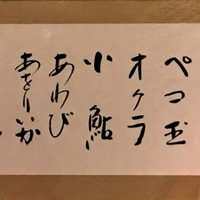 ペコ玉
オクラ
小鮎
あわび
あをりいか